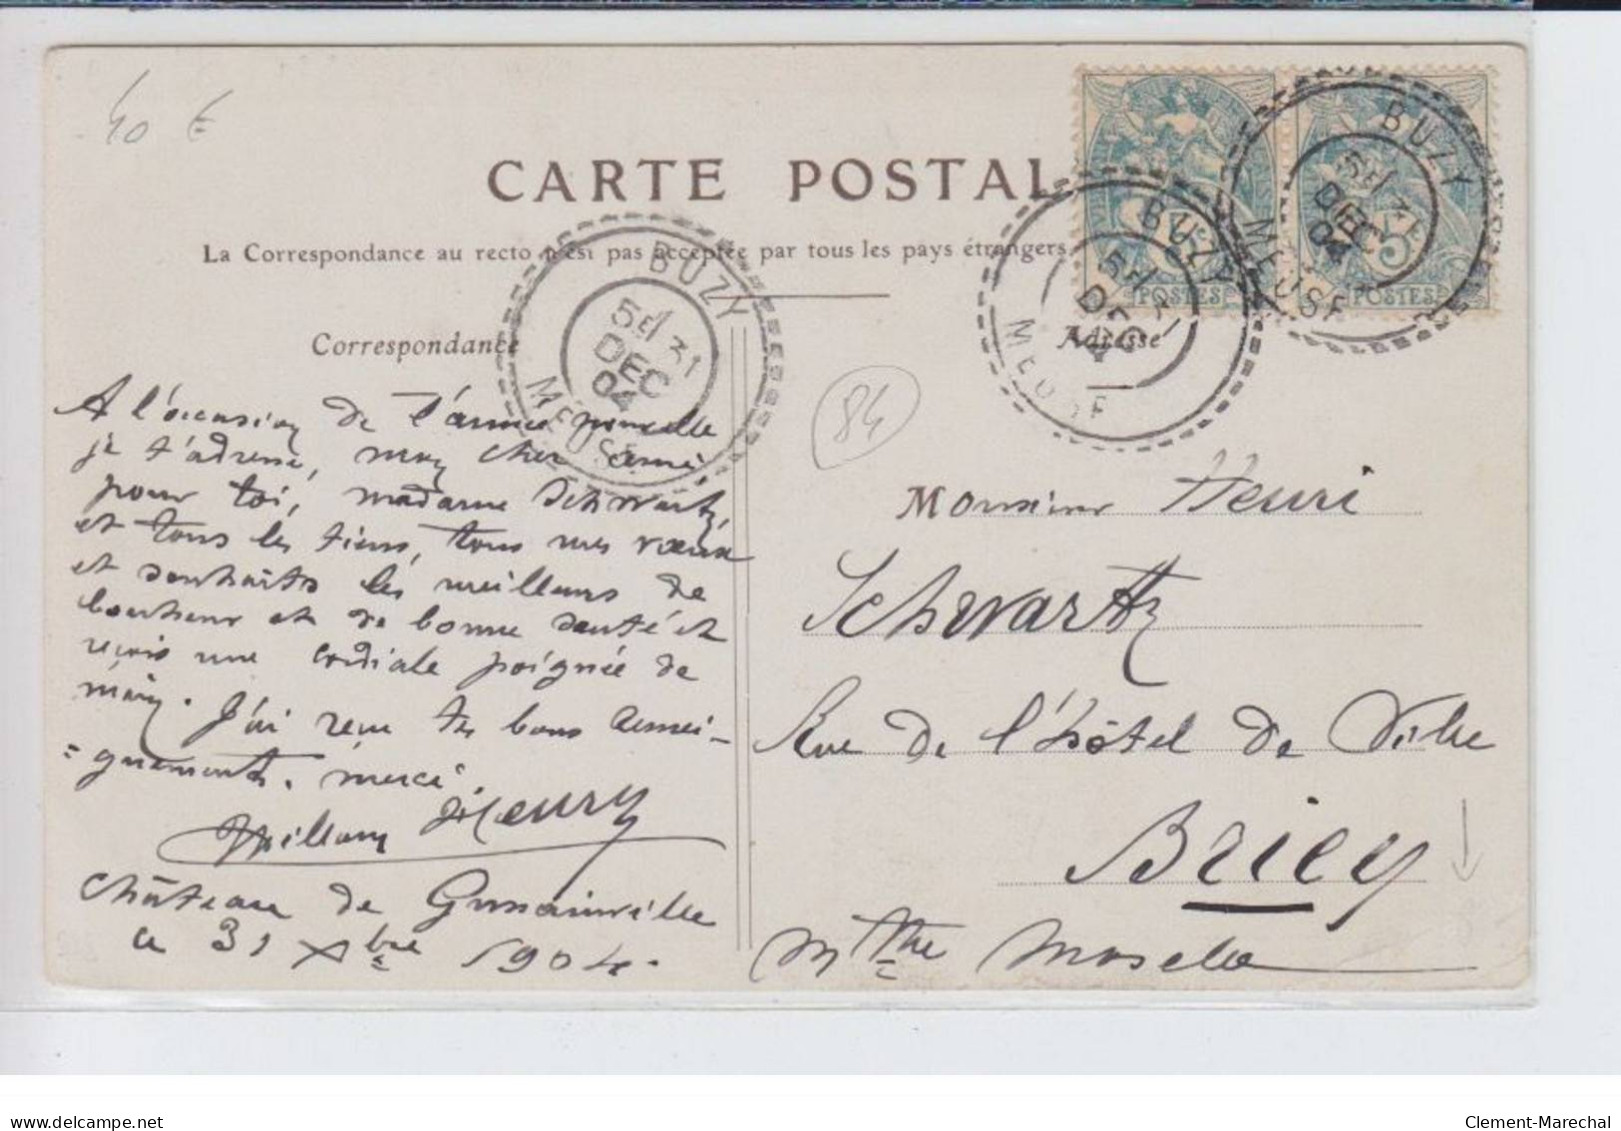 40 €
CARTE POSTAL
La Correspondance au recto n'est pas acceptée par tous les pays étrangers
BUZY
5E/ 31
DEC
04
MEUSE
BUZY
5E/ 31
DEC
04
MEUSE
BUZY
5E/
DEC
04
MEUSE
POSTES
POSTES
5
Correspondance
Adresse
84
A l'occasion de l'année nouvelle
je t'adresse, mon cher ami
pour toi, madame Schwartz,
et tous les tiens, tous mes vœux
et souhaits les meilleurs de
bonheur et de bonne santé et
reçois une cordiale poignée de
main. J'ai reçu tes bons rensei-
=gnements. merci
Willam Henry
Château de Gussainville
le 31 Xbre 1904.
Monsieur Henri
Schwartz
Rue de l'hôtel de Ville
Briey
Mthe Moselle
www.delcampe.net
Clement-Marechal